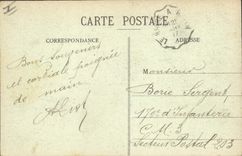 CARTE POSTALE
CORRESPONDANCE
ADRESSE
Bons souvenirs
et cordiale poignée
de main
Monsieur
Borie Sergent,
170e d'Infanterie
C. M. 3
Secteur Postal 203